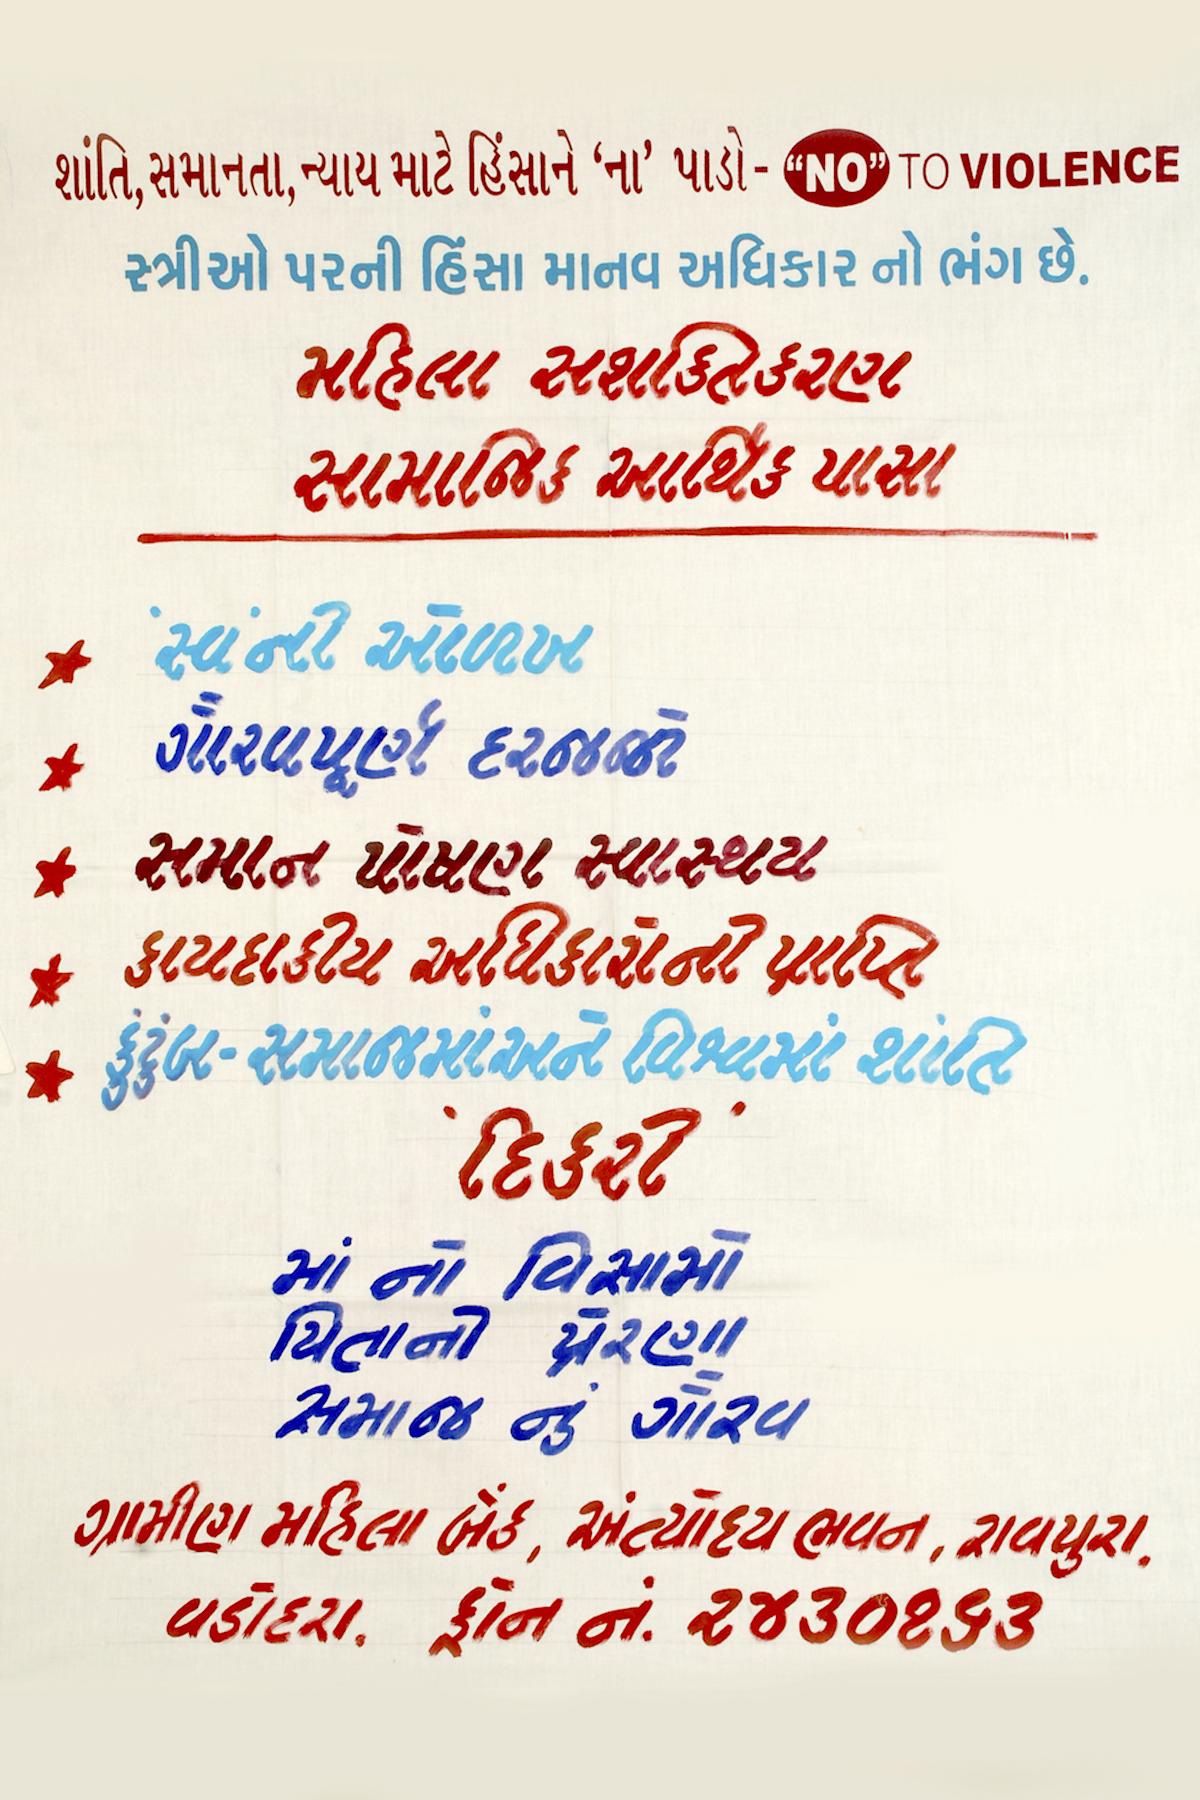 શાંતિ, સમાનતા, ન્યાય માટે હિંસાને ‘ના’ પાડો - “NO” TO VIOLENCE
સ્ત્રીઓ પરની હિંસા માનવ અધિકાર નો ભંગ છે.
મહિલા સશક્તિકરણ
સામાજિક આર્થિક પાસા
'સ્વ'ની ઓળખ
ગૌરવપૂર્ણ દરજજો
સમાન પોષણ સ્વાસ્થય
કાયદાકીય અધિકારોની પ્રાપ્તિ
કુંટુંબ-સમાજમાંઅને વિશ્વમાં શાંતિ
'દિકરી'
માં નો વિસામો
પિતાની પ્રેરણા
સમાજ નું ગૌરવ
ગ્રામીણ મહિલા બેંક, અંત્યોદય ભવન, રાવપુરા.
વડોદરા. ફોન નં. ૨૪૩૦૧૬૩